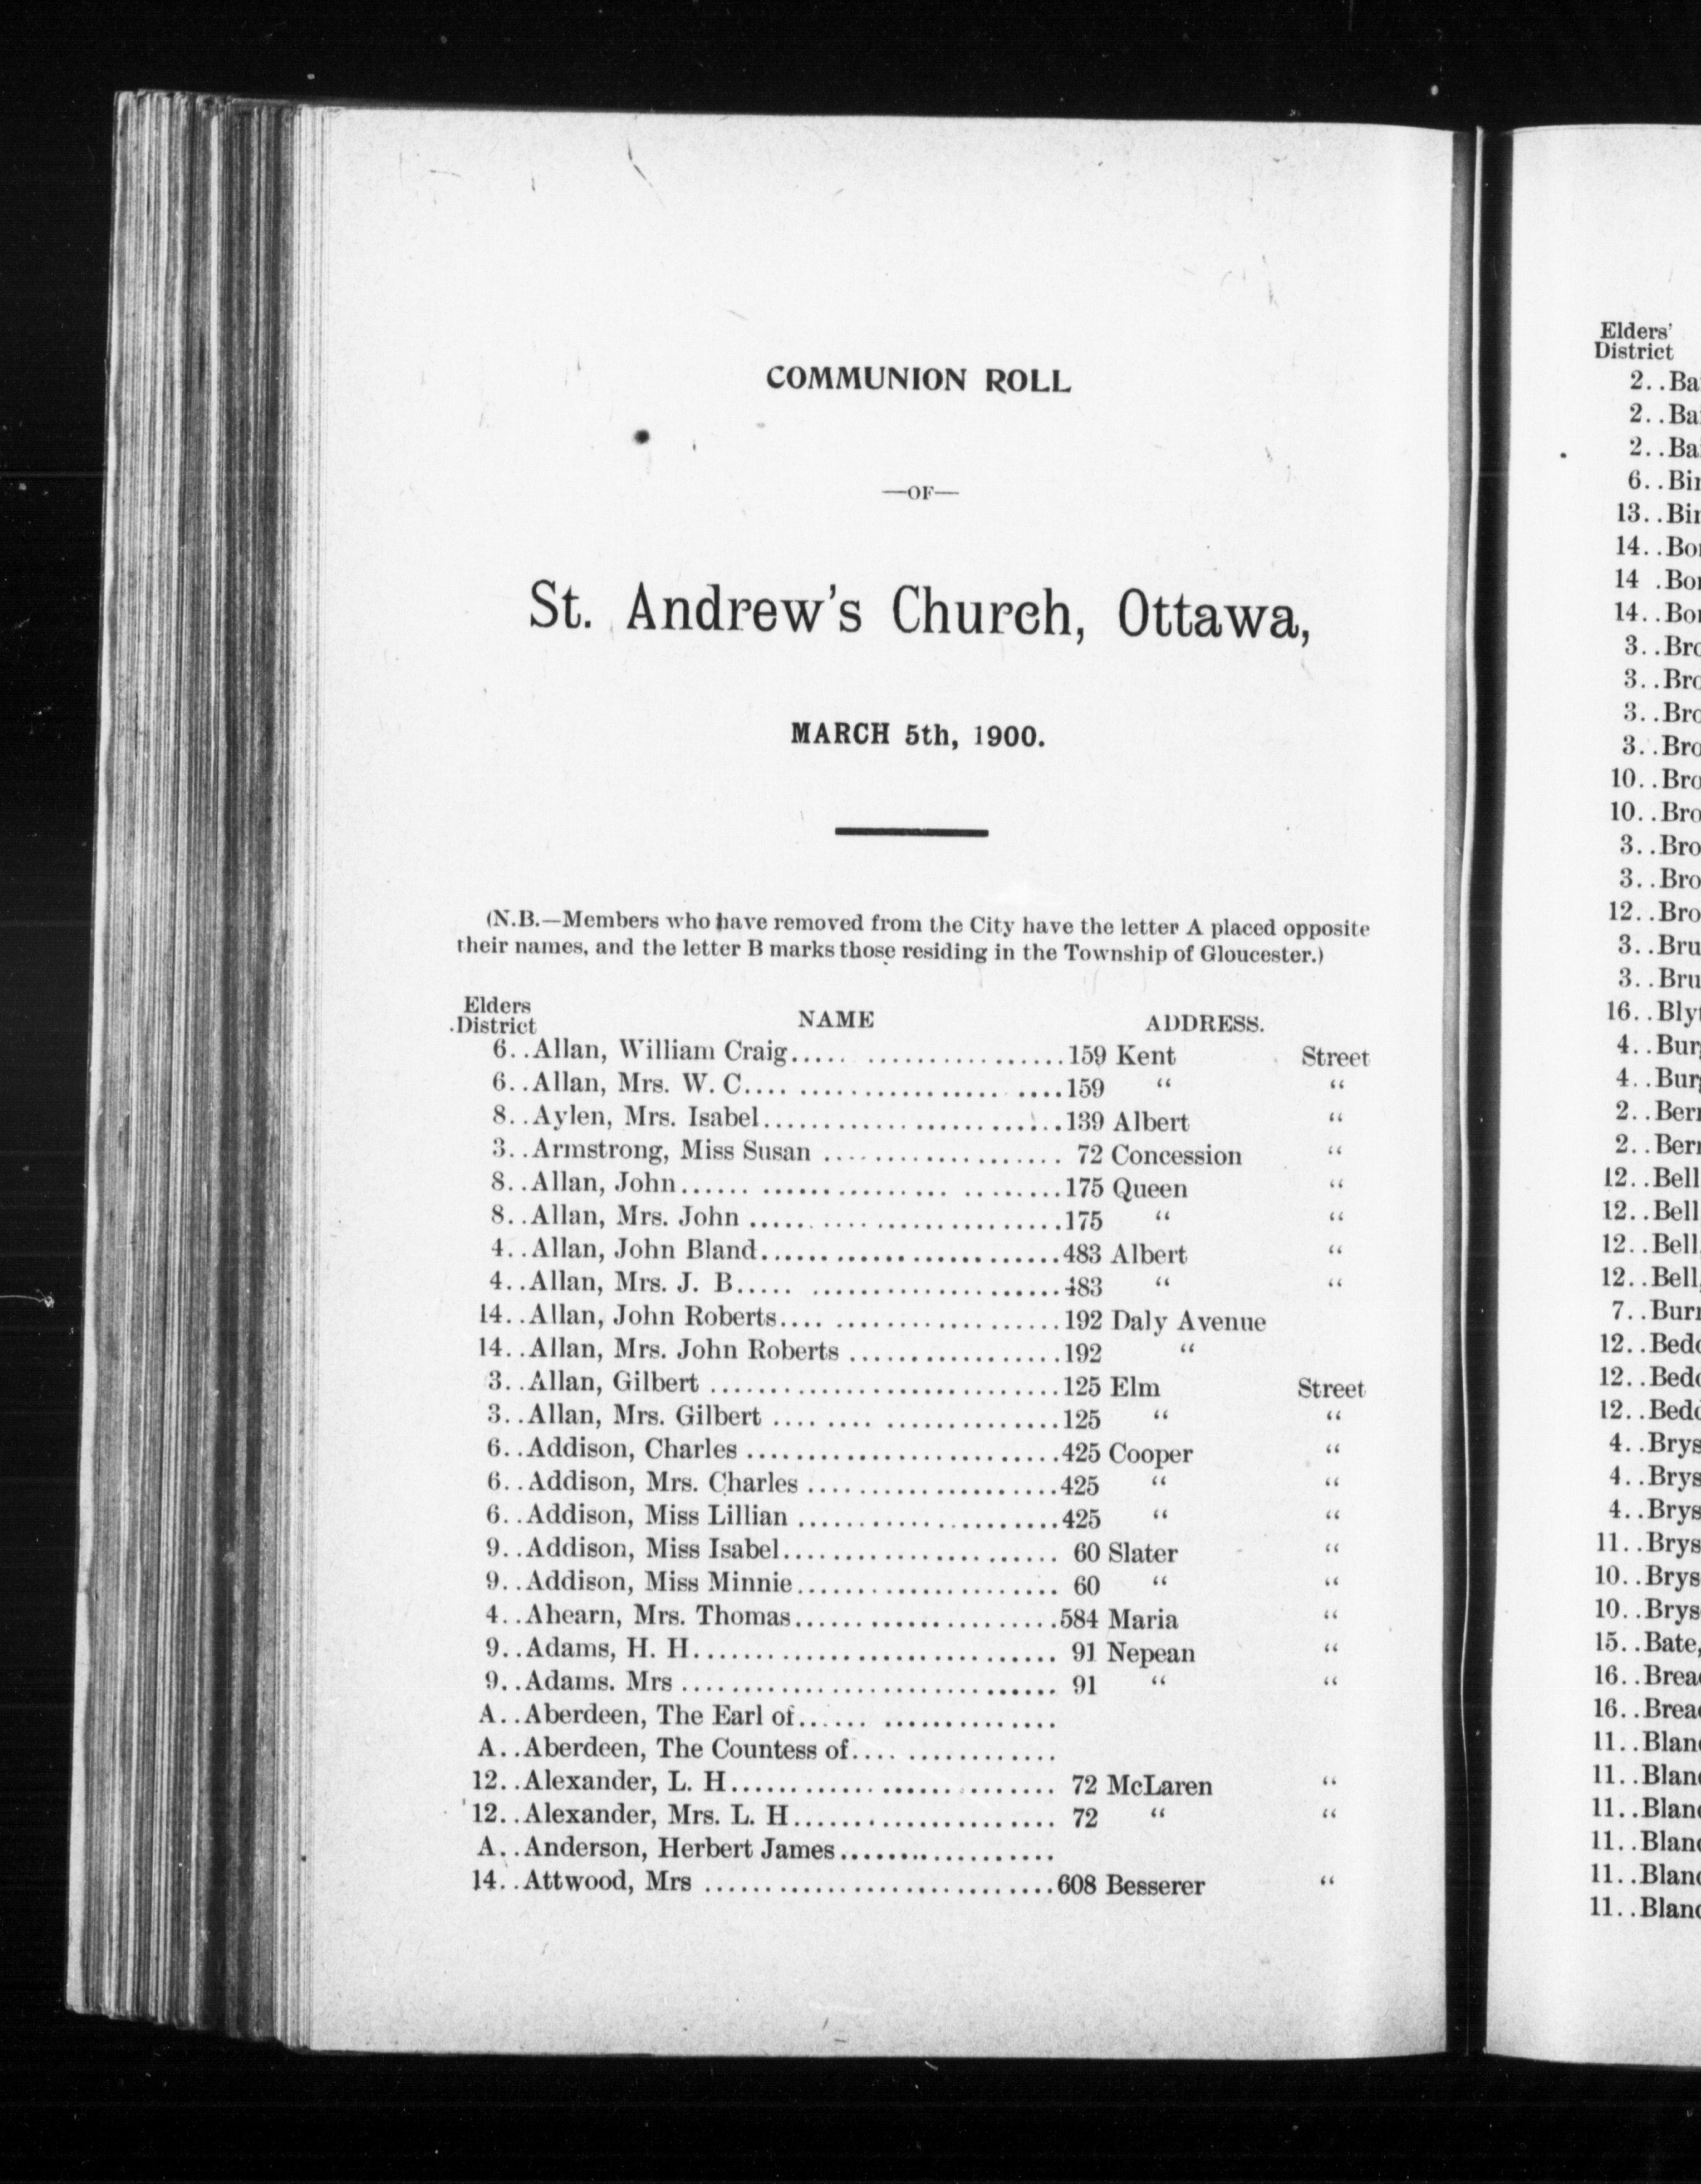 COMMUNION ROLL
—OF—
St. Andrew's Church, Ottawa,
MARCH 5th, 1900.
(N.B.—Members who have removed from the City have the letter A placed opposite
their names, and the letter B marks those residing in the Township of Gloucester.)
Elders
District NAME ADDRESS.
6..Allan, William Craig..... ..................159 Kent Street
6..Allan, Mrs. W. C.... ................. ....159 “ “
8..Aylen, Mrs. Isabel.........................139 Albert “
3..Armstrong, Miss Susan .................... 72 Concession “
8..Allan, John...... ............... .........175 Queen “
8..Allan, Mrs. John ..........................175 “ “
4..Allan, John Bland.........................483 Albert “
4..Allan, Mrs. J. B..... .....................483 “ “
14..Allan, John Roberts.... ...................192 Daly Avenue
14..Allan, Mrs. John Roberts ..................192 “
3..Allan, Gilbert .............................125 Elm Street
3..Allan, Mrs. Gilbert .... .... ...............125 “ “
6..Addison, Charles ..........................425 Cooper “
6..Addison, Mrs. Charles .....................425 “ “
6..Addison, Miss Lillian ......................425 “ “
9..Addison, Miss Isabel....................... 60 Slater “
9..Addison, Miss Minnie...................... 60 “ “
4..Ahearn, Mrs. Thomas......................584 Maria “
9..Adams, H. H.............................. 91 Nepean “
9..Adams. Mrs ............................... 91 “ “
A..Aberdeen, The Earl of...... ...............
A..Aberdeen, The Countess of.... .............
12..Alexander, L. H........................... 72 McLaren “
12..Alexander, Mrs. L. H...................... 72 “ “
A..Anderson, Herbert James..................
14..Attwood, Mrs .............................608 Besserer “
Elders'
District
2..
2..
2..
6..
13..
14..
14 .
14..
3..
3..
3..
3..
10..
10..
3..
3..
12..
3..
3..
16..
4..
4..
2..
2..
12..Bell
12..Bell
12..Bell,
12..Bell,
7..
12..
12..
12..
4..
4..
4..
11..
10..
10..
15..Bate,
16..
16..
11..
11..
11..
11..
11..
11..